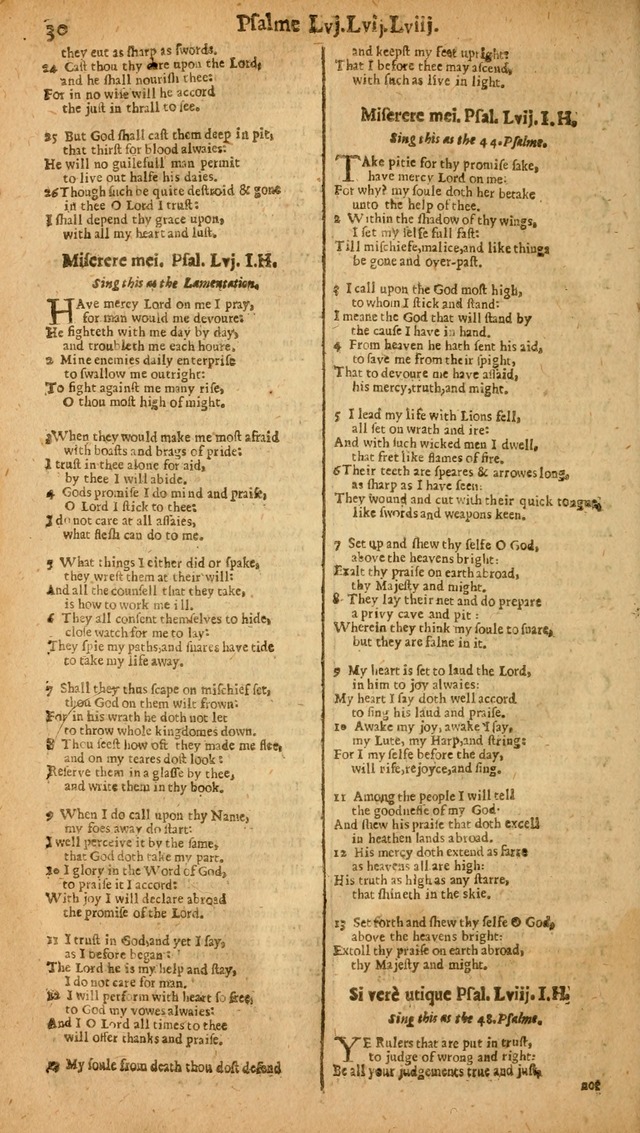 30
Psalme Lvj.Lvij.Lviij.
they cut as sharp as swords.
24 Cast thou thy care upon the Lord,
and he shall nourish thee:
For in no wise will he accord
the just in thrall to see.
25 But God shall cast them deep in pit,
that thirst for blood alwaies:
He will no guilefull man permit
to live out halfe his daies.
26 Though such be quite destroid & gone
in thee O Lord I trust:
I shall depend thy grace upon,
with all my heart and lust.
Miserere mei. Psal. Lvj. I.H.
Sing this as the Lamentation.
HAve mercy Lord on me I pray,
for man would me devoure:
He fighteth with me day by day,
and troubleth me each houre.
2 Mine enemies daily enterprise
to swallow me outright:
To fight against me many rise,
O thou most high of might.
3 When they would make me most afraid
with boasts and brags of pride:
I trust in thee alone for aid,
by thee I will abide.
4 Gods promise I do mind and praise,
O Lord I stick to thee:
I do not care at all assaies,
what flesh can do to me.
5 What things I either did or spake,
they wrest them at their will:
And all the counsell that they take,
is how to work me ill.
6 They all consent themselves to hide,
close watch for me to lay:
They spie my paths, and snares have tide
to take my life away.
7 Shall they thus scape on mischief set,
thou God on them wilt frown:
For in his wrath he doth not let
to throw whole kingdomes down.
8 Thou seest how oft they made me flee,
and on my teares dost look:
Reserve them in a glasse by thee,
and write them in thy book.
9 When I do call upon thy Name,
my foes away do start:
I well perceive it by the same,
that God doth take my part.
10 I glory in the Word of God,
to praise it I accord:
With joy I will declare abroad
the promise of the Lord.
11 I trust in God, and yet I say,
as I before began:
The Lord he is my help and stay,
I do not care for man.
12 I will perform with heart so free,
to God my vowes alwaies:
And I O Lord all times to thee
will offer thanks and praise.
13 My soule from death thou dost defend
and keepst my feet upright:
That I before thee may ascend,
with such as live in light.
Miserere mei. Psal. Lvij. I.H.
Sing this as the 44. Psalme.
TAke pitie for thy promise sake,
have mercy Lord on me:
For why? my soule doth her betake
unto the help of thee.
2 Within the shadow of thy wings,
I set my selfe full fast:
Till mischiefe, malice, and like things
be gone and over-past.
3 I call upon the God most high,
to whom I stick and stand:
I meane the God that will stand by
the cause I have in hand.
4 From heaven he hath sent his aid,
to save me from their spight,
That to devoure me have assaid,
his mercy, truth, and might.
5 I lead my life with Lions fell,
all set on wrath and ire:
And with such wicked men I dwell,
that fret like flames of fire.
6 Their teeth are speares & arrowes long,
as sharp as I have seen:
They wound and cut with their quick tongue,
like swords and weapons keen.
7 Set up and shew thy selfe O God,
above the heavens bright:
Exalt thy praise on earth abroad,
thy Majesty and might.
8 They lay their net and do prepare
a privy cave and pit:
Wherein they think my soule to snare,
but they are falne in it.
9 My heart is set to laud the Lord,
in him to joy alwaies:
My heart I say doth well accord
to sing his laud and praise.
10 Awake my joy, awake I say,
my Lute, my Harp, and string:
For I my selfe before the day,
will rise, rejoyce, and sing.
11 Among the people I will tell
the goodnesse of my God:
And shew his praise that doth excell
in heathen lands abroad.
12 His mercy doth extend as farre
as heavens all are high:
His truth as high as any starre,
that shineth in the skie.
13 Set forth and shew thy selfe O God,
above the heavens bright:
Extoll thy praise on earth abroad,
thy Majesty and might.
Si verè utique Psal. Lviij. I.H.
Sing this as the 48. Psalme.
YE Rulers that are put in trust,
to judge of wrong and right:
Be all your judgements true and just,
not